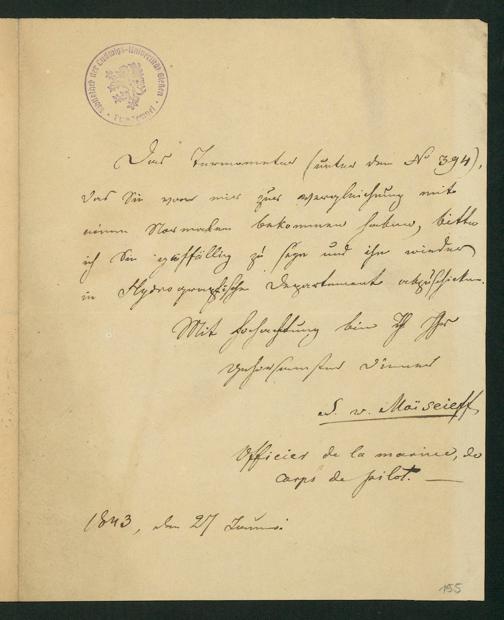 Bibliothek der Ludwigs-Universität Gießen
Das Termometer (unter dem № 394),
das Sie von mir zur Vergleichung mit
einem Normalen bekommen haben, bitte
ich Sie zu sein und ihn wieder
in Hydrographische Departement abzuschicken.
Mit Hochachtung bin ich Ihr
gehorsamster Diener
v. Moiseieff
Officier de la marine, du
corps de pilot. —
1843, den 27
155